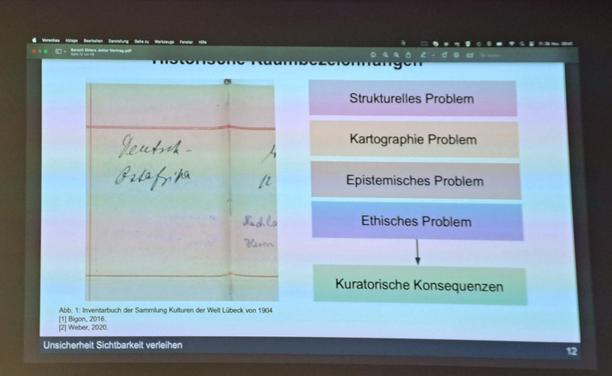 Vorschau Ablage Bearbeiten Darstellung Gehe zu Werkzeuge Fenster Hilfe
Historische Raumbezeichnungen
Deutsch-
Ostafrika
12
Strukturelles Problem
Kartographie Problem
Epistemisches Problem
Ethisches Problem
Kuratorische Konsequenzen
Abb. 1: Inventarbuch der Sammlung Kulturen der Welt Lübeck von 1904
[1] Bigon, 2016.
[2] Weber, 2020.
Unsicherheit Sichtbarkeit verleihen
12